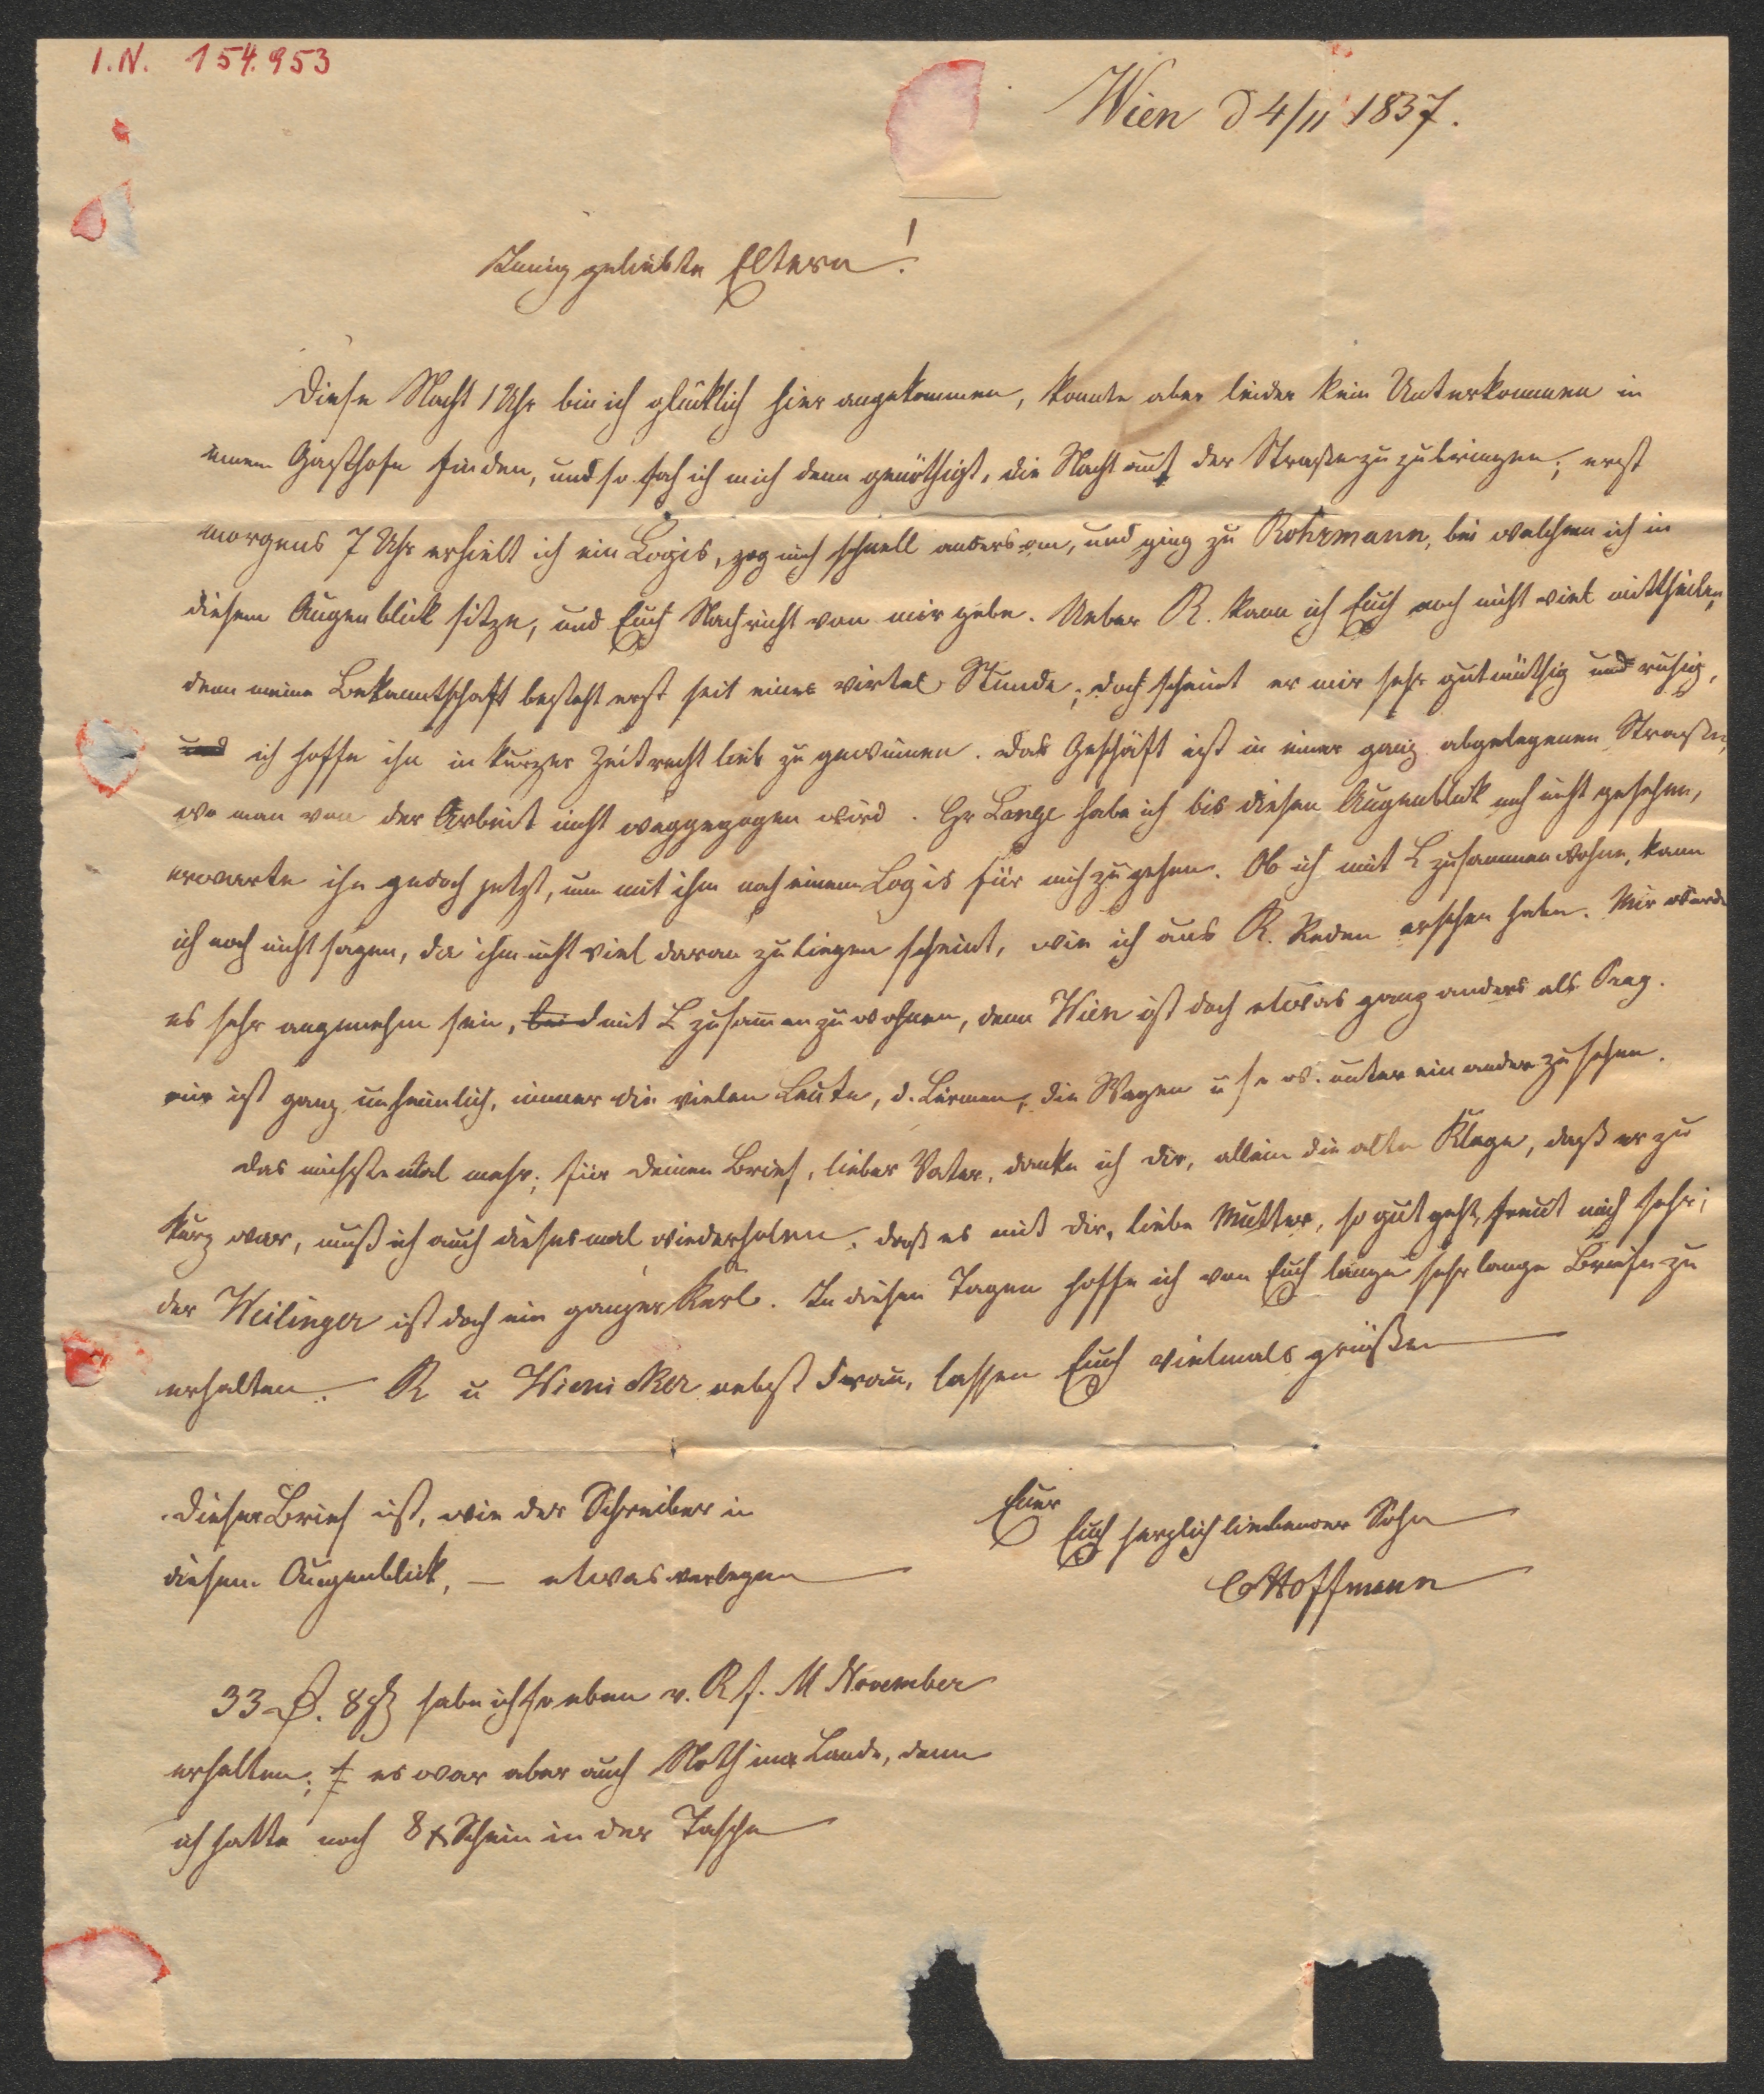 I.N. 154.953
Wien d 4/11 1837.
Innig geliebte Eltern!
Diese Nacht 1 Uhr bin ich glücklich hier angekommen, konnte aber leider kein Unterkommen in
einem Gasthofe finden, und so sah ich mich denn genöthigt, die Nacht auf der Straße zu zubringen; erst
morgens 7 Uhr erhielt ich ein Logis, zog mich schnell anders an, und ging zu Rohrmann, bei welchem ich in
diesem Augenblick sitze, und Euch Nachricht von mir gebe. Ueber R. kann ich Euch noch nicht viel mittheilen,
denn meine Bekanntschaft besteht erst seit einer virtel Stunde; doch scheint er mir sehr gutmüthig und ruhig,
und ich hoffe ihn in kurzer Zeit recht lieb zu gewinnen. Das Geschäft ist in einer ganz abgelegenen Straße,
wo man von der Arbeit nicht weggezogen wird. Hr Lange habe ich bis diesen Augenblick noch nicht gesehen,
erwarte ihn jedoch jetzt, um mit ihm nach einem Logis für mich zu gehen. Ob ich mit L zusammen wohne, kann
ich noch nicht sagen, da ihm nicht viel daran zu liegen scheint, wie ich aus R. Reden ersehen habe. Mir würde
es sehr angenehm sein, mit L zusammen zu wohnen, denn Wien ist doch etwas ganz anders als Prag.
mir ist ganz unheimlich, immer die vielen Leute, d. Lärmen, die Wagen u s. w. unter ein ander zu sehen.
Das nächste Mal mehr; für Deinen Brief, lieber Vater, danke ich Dir, allein die alte Klage, daß er zu
kurz war, muß ich auch diesesmal wiederholen. daß es mit Dir, liebe Mutter, so gut geht, freut mich sehr;
der Weilinger ist doch ein ganzer Kerl. In diesen Tagen hoffe ich von Euch lange sehr lange Briefe zu
erhalten. R u Wienicker nebst Frau, lassen Euch vielmals grüßen
Dieser Brief ist, wie der Schreiber in
diesem Augenblick, — etwas verlegen
Euer
Euch herzlich liebender Sohn
COHoffmann
33 . 8 habe ich so eben v. R f. M November
erhalten; es war aber auch Noth im Lande, denn
ich hatte noch 8 x Schein in der Tasche